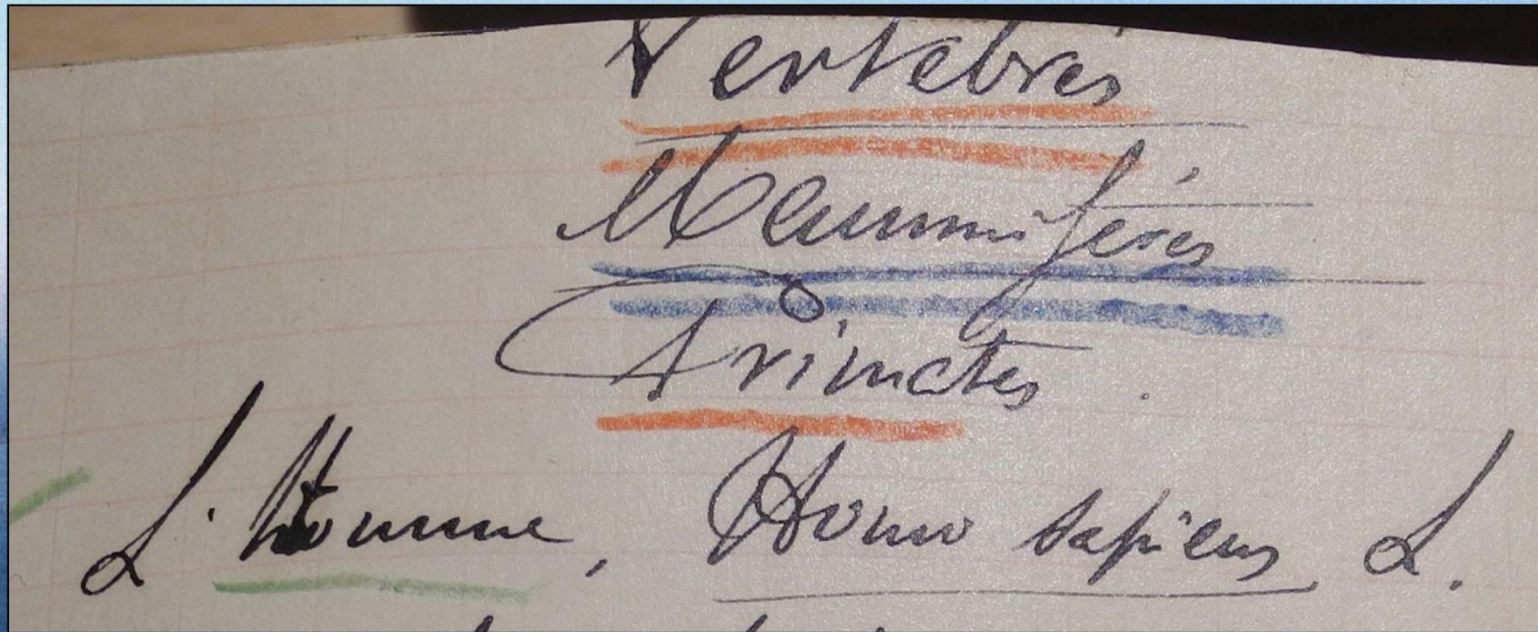 Vertébrés
Mammifères
Primates
L'Homme, Homo sapiens L.